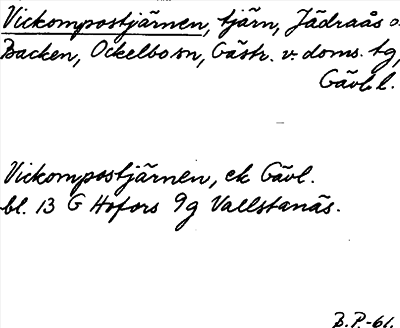 Vickompostjärnen, tjärn, Jädraås o.
Backen, Ockelbo sn, Gästr. v. doms. tg,
Gävl. l.
Vickompostjärnen, ek Gävl.
bl. 13 G Hofors 9g Vallstanäs.
B.P.-61.